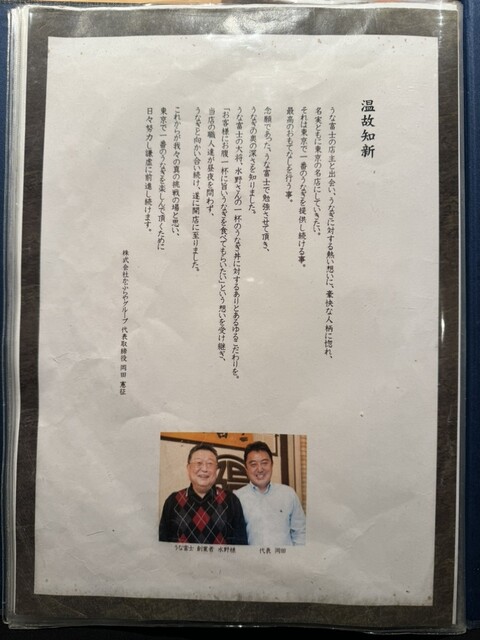 温故知新
うな富士の店主と出会い、うなぎに対する熱い想いに、豪快な人柄に惚れ、
名実ともに東京の名店にしていきたい。
それは東京で一番のうなぎを提供し続ける事。
最高のおもてなしを行う事。
念願であった、うな富士で勉強させて頂き、
うなぎの奥の深さを知りました。
うな富士の大将、水野さんの一杯のうなぎ丼に対するありとあらゆるこだわりを。
「お客様にお腹一杯に旨いうなぎを食べてもらいたい」という想いを受け継ぎ、
当店の職人達が昼夜を問わず、
うなぎと向かい合い続け、遂に開店に至りました。
これからが我々の真の挑戦の場と思い、
東京で一番のうなぎを楽しんで頂くために
日々努力し謙虚に前進し続けます。
株式会社かぶらやグループ 代表取締役 岡田 憲征
うな富士 創業者 水野
代表 岡田